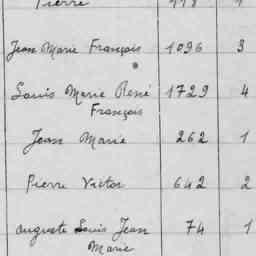 Pierre
Jean Marie François 1096 3
Louis Marie René 1729 4
François
Jean Marie 262 1
Pierre Victor 642 2
Auguste Louis Jean 74 1
Marie